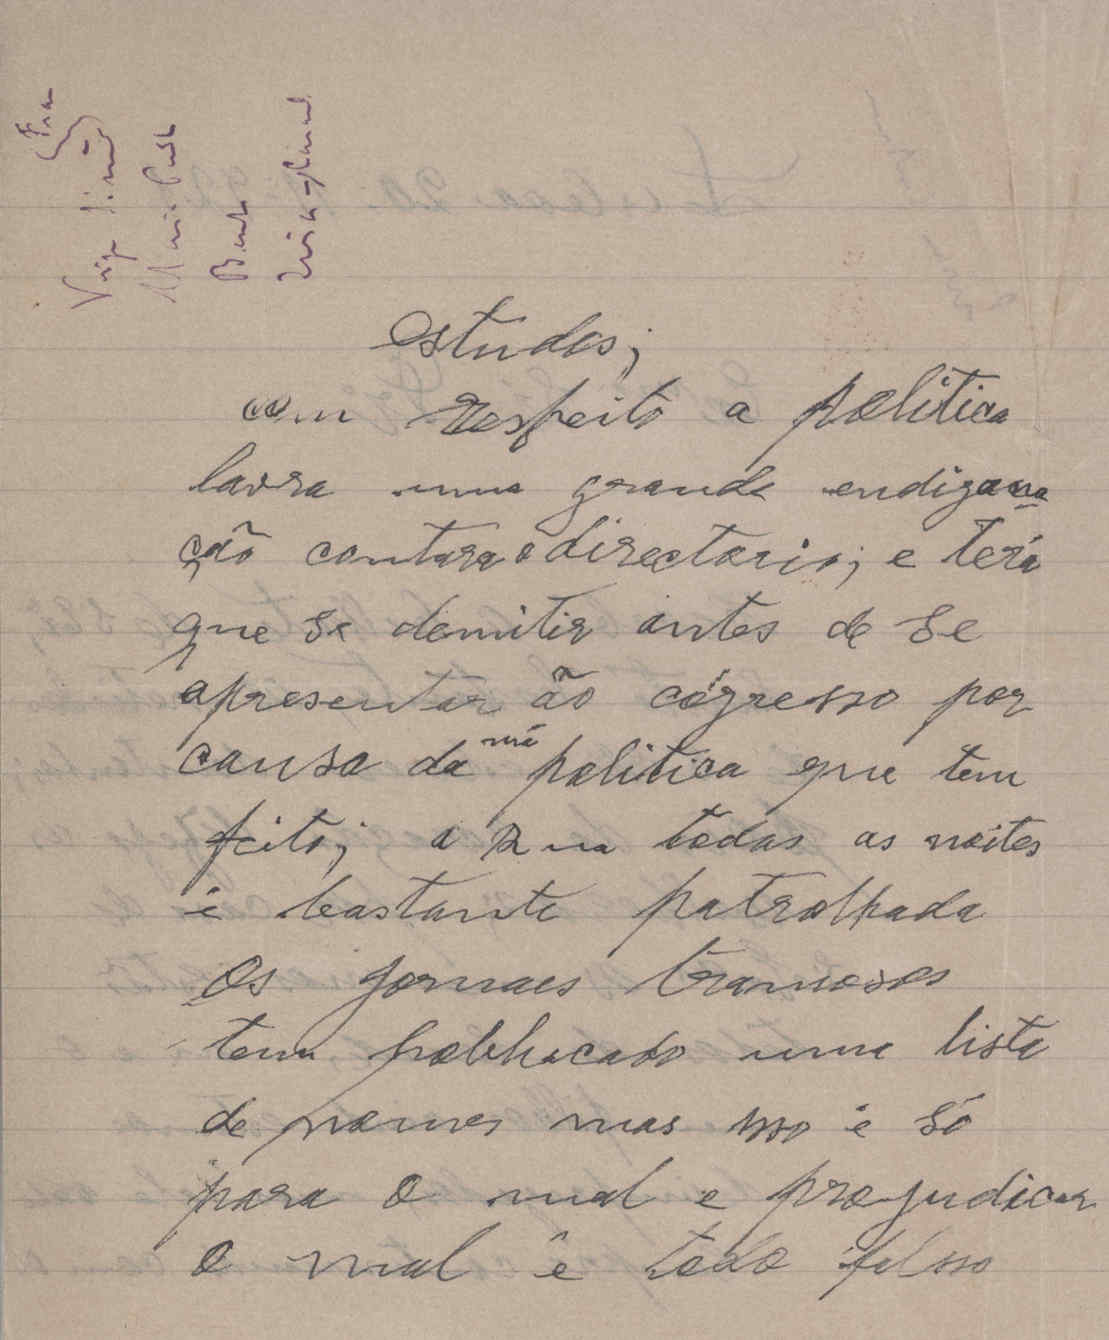 estudos;
com respeito a politica
lavra uma grande endigana
ção contara o directorio; e terá
que se demitir antes de se
apresentar ão cógresso por
causa da má politica que tem
feito; a Rua todas as noites
é bastante patrolhada
Os jornaes tramosos
tem pobblicado uma lista
de nomes mas isso é só
para o mal e projudicar
O mal ê todo falsso